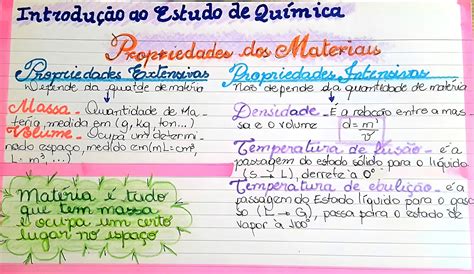 Introdução ao Estudo de Química
Propriedades dos Materiais
Propriedades Extensivas
Depende da quatde de matéria
Massa - Quantidade de Ma-
téria, medida em (g, kg, ton...)
Volume - Ocupa um determi-
nado espaço, medido em (mL = cm³,
L = m³, ...)
Matéria é tudo
que tem massa
e ocupa um certo
lugar no espaço
Propriedades Intensivas
Não depende da quantidade de matéria
Densidade - É a relação entre a mas-
sa e o volume d = m/v
Temperatura de fusão - é a
passagem do estado sólido para o líquido
(S → L), derrete a 0°
Temperatura de ebulição - é a
passagem do Estado líquido para o gaso
so (L → G), passa para o estado de
vapor à 100°